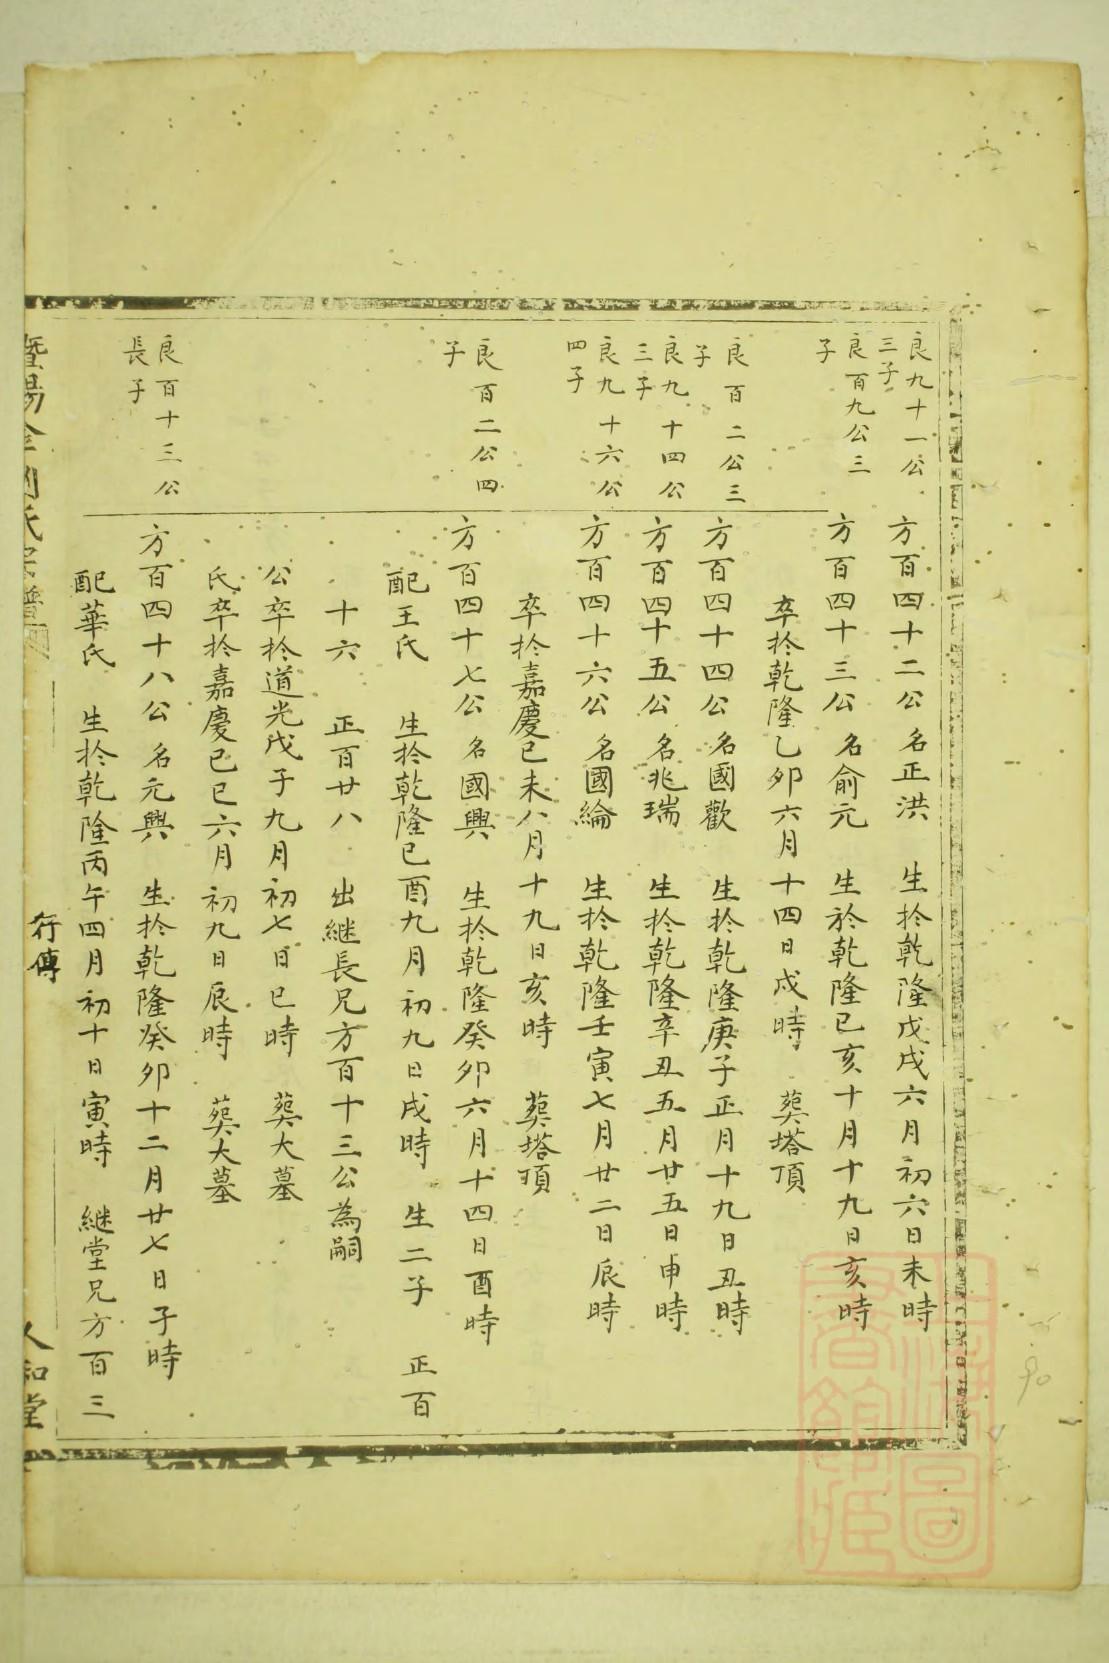 良九十一公
三子
方百四十二公 名正洪 生於乾隆戊戌六月初六日未時
良百九公三
子
方百四十三公 名俞元 生於乾隆己亥十月十九日亥時
卒於乾隆乙卯六月十四日戌時 葬塔頂
良百二公三
子
方百四十四公 名國歡 生於乾隆庚子正月十九日丑時
良九十四公
三子
方百四十五公 名兆瑞 生於乾隆辛丑五月廿五日申時
良九十六公
四子
方百四十六公 名國綸 生於乾隆壬寅七月廿二日辰時
卒於嘉慶己未八月十九日亥時 葬塔頂
良百二公四
子
方百四十七公 名國興 生於乾隆癸卯六月十四日酉時
配王氏 生於乾隆己酉九月初九日戌時 生二子 正百
十六 正百廿八 出継長兄方百十三公為嗣
公卒於道光戊子九月初七日巳時 葬大墓
氏卒於嘉慶己巳六月初九日辰時 葬大墓
良百十三公
長子
方百四十八公 名元興 生於乾隆癸卯十二月廿七日子時
配華氏 生於乾隆丙午四月初十日寅時 継堂兄方百三
暨陽 氏宗譜
行傳
人和堂
上海圖
書館藏
90